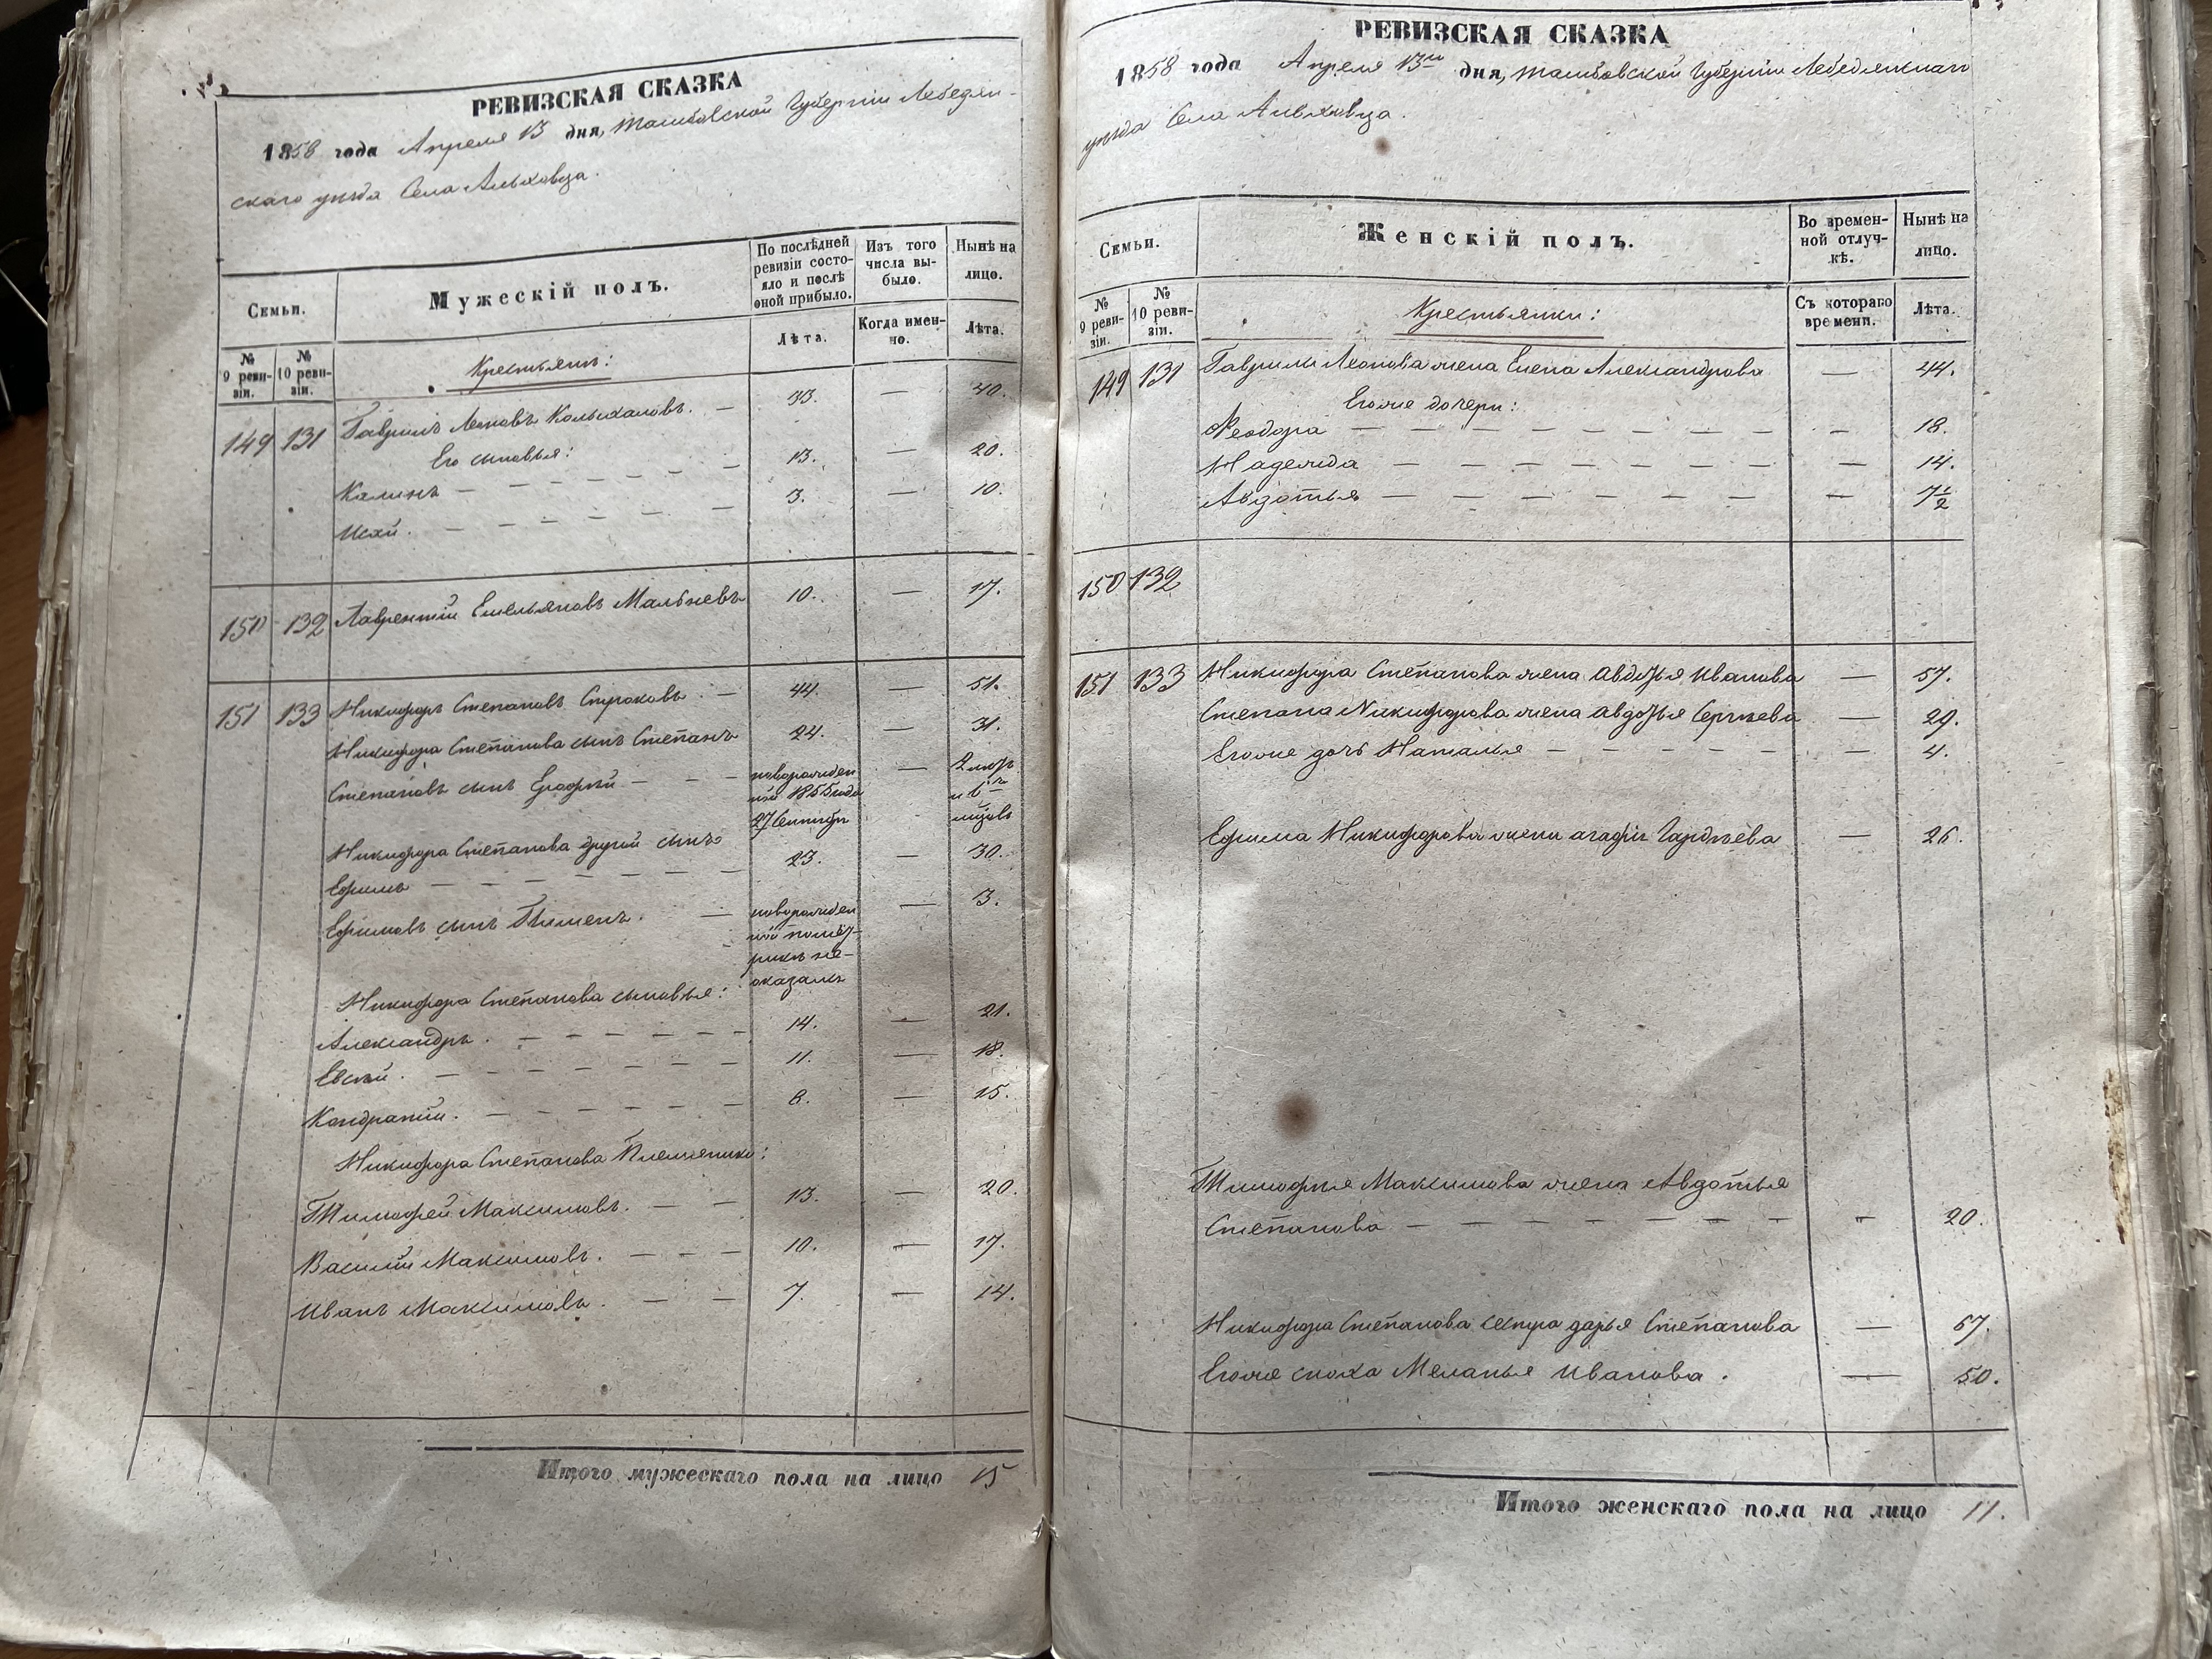 РЕВИЗСКАЯ СКАЗКА
1858 года Апреля 13 дня, Тамбовской Губернiи Лебедян-
скаго уѣзда Села Альховца.
Семьи.
Мужескiй полъ.
По послѣдней ревизiи состо-яло и послѣ оной прибыло.
Изъ того числа вы-было.
Нынѣ на лицо.
№ 9 реви-зiи.
№ 10 реви-зiи.
Крестьянъ:
Лѣта.
Когда имен-но.
Лѣта.
149 131 Гаврилъ Леоновъ Колыхаловъ. — 33. — 40.
Его сыновья:
Калинъ — 13. — 20.
Исай. — 3. — 10.
150 132 Лаврентiй Емельяновъ 10. — 17.
151 133 Никифоръ Степановъ Строковъ. — 44. — 51.
Никифора Степанова сынъ Степанъ 24. — 31.
Степановъ сынъ Ерофѣй — новорожден
ной 1855 года
27 Сентябр
— 2 
и 6
мѣцовъ
Никифора Степанова другой сынъ
Ефимъ — 23. — 30.
Ефимовъ сынъ Пименъ. — новорожден
ной по
не-
оказалъ
— 3.
Никифора Степанова сыновья:
Александръ. — 14. — 21.
Евсѣй. — 11. — 18.
Кондратiй. — 8. — 15.
Никифора Степанова Племянники:
Тимофей Максимовъ. — 13. — 20.
Василiй Максимовъ. — 10. — 17.
Иванъ Максимовъ. — 7. — 14.
Итого мужескаго пола на лицо 15
РЕВИЗСКАЯ СКАЗКА
1858 года Апреля 13го дня, Тамбовской Губернiи Лебедянскаго
уѣзда Села Альховца.
Семьи.
Женскiй полъ.
Во времен-ной отлуч-кѣ.
Нынѣ на лицо.
№ 9 реви-зiи.
№ 10 реви-зiи.
Крестьянки:
Съ котораго времени.
Лѣта.
149 131 Гаврилы Леонова жена Елена Александрова — 44.
Егоже дочери:
Феодора — 18.
Надежда — 14.
Авдотья — 7½
150 132
151 133 Никифора Степанова жена Авдотья Иванова — 57.
Степана Никифорова жена Авдотья Сергѣева — 29.
Егоже дочь Наталья — 4.
Ефима Никифорова жена Гардѣева — 26.
Тимофѣя Максимова жена Авдотья
Степанова — 20.
Никифора Степанова сестра Дарья Степанова — 67.
Егоже сноха Меланья Иванова. — 50.
Итого женскаго пола на лицо 11.